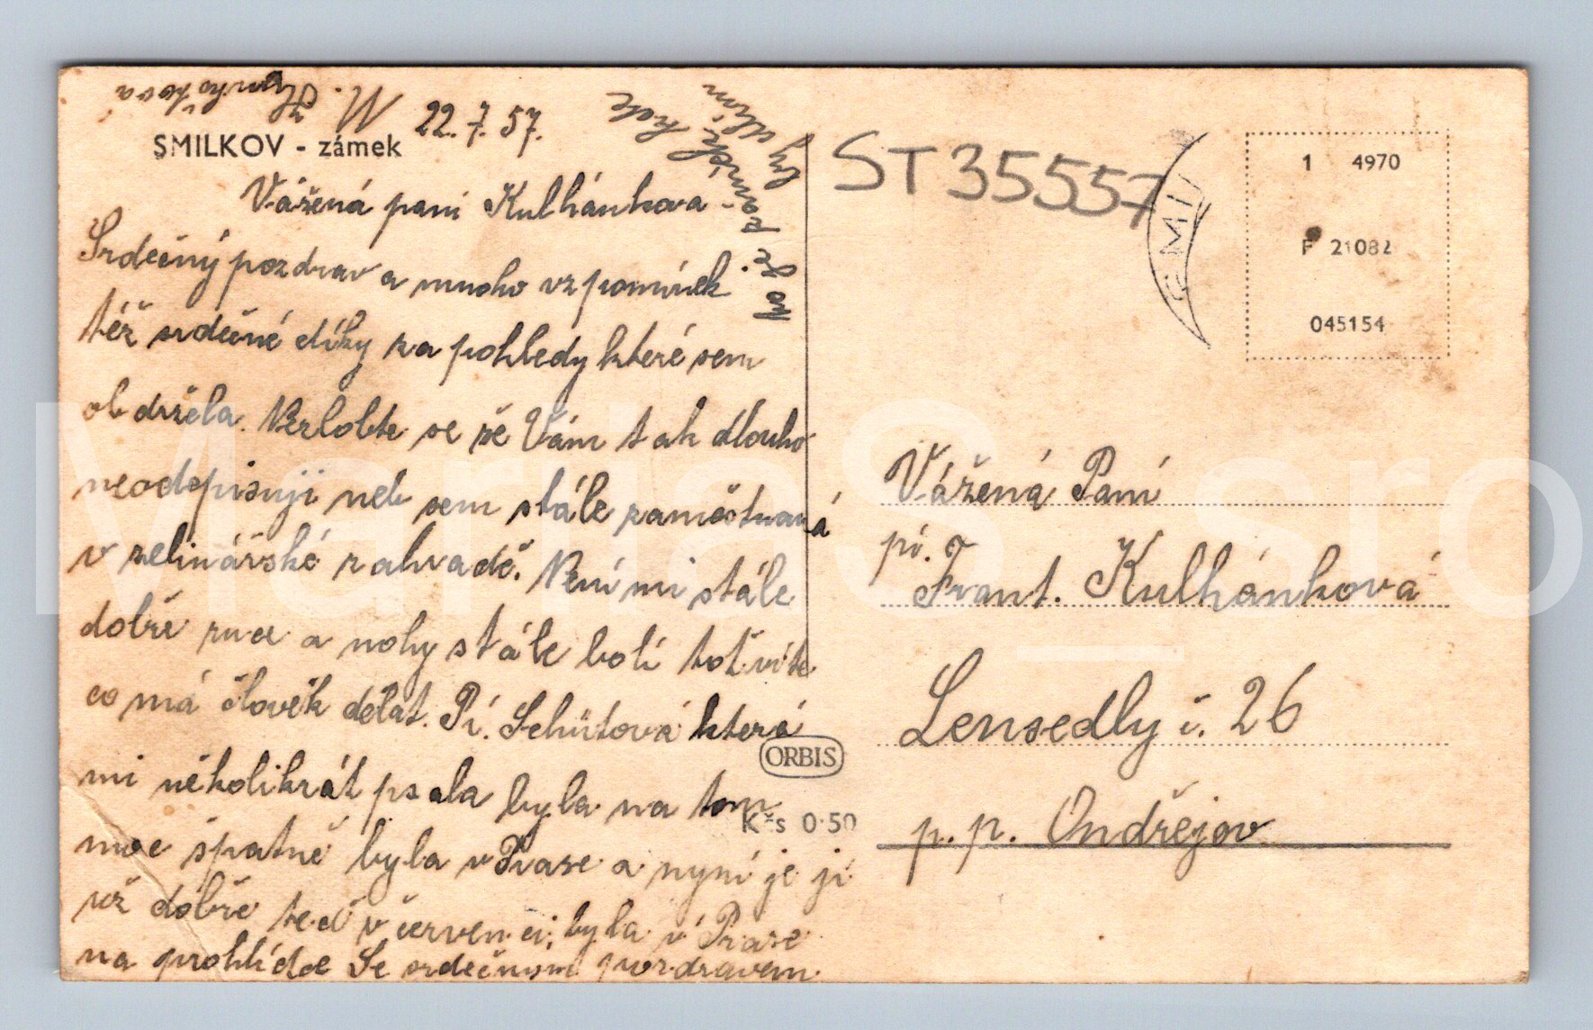 SMILKOV - zámek
22. 7. 57.
Vážená paní Kulhánkova
Srdečný pozdrav a mnoho vzpomínek
též srdečné díky za pohledy které sem
obdržela. Nezlobte se že Vám tak dlouho
neodepisuji neb sem stále zaměstnaná
v zelinářské zahradě. Není mi stále
dobře ruce a nohy stále bolí toť víte
co má člověk dělat. Pí. Schütová která
mi několikrát psala byla na tom
moc špatně byla v Praze a nyní je jí
už dobře teď v červenci byla v Praze
na prohlídce Se srdečným pozdravem
M.
ORBIS
Kčs 0·50
ST35557
SMIL
1 4970
F 21082
045154
Vážená Paní
pí.
Frant. Kulhánková
Lensedly č. 26
p.p. Ondřejov